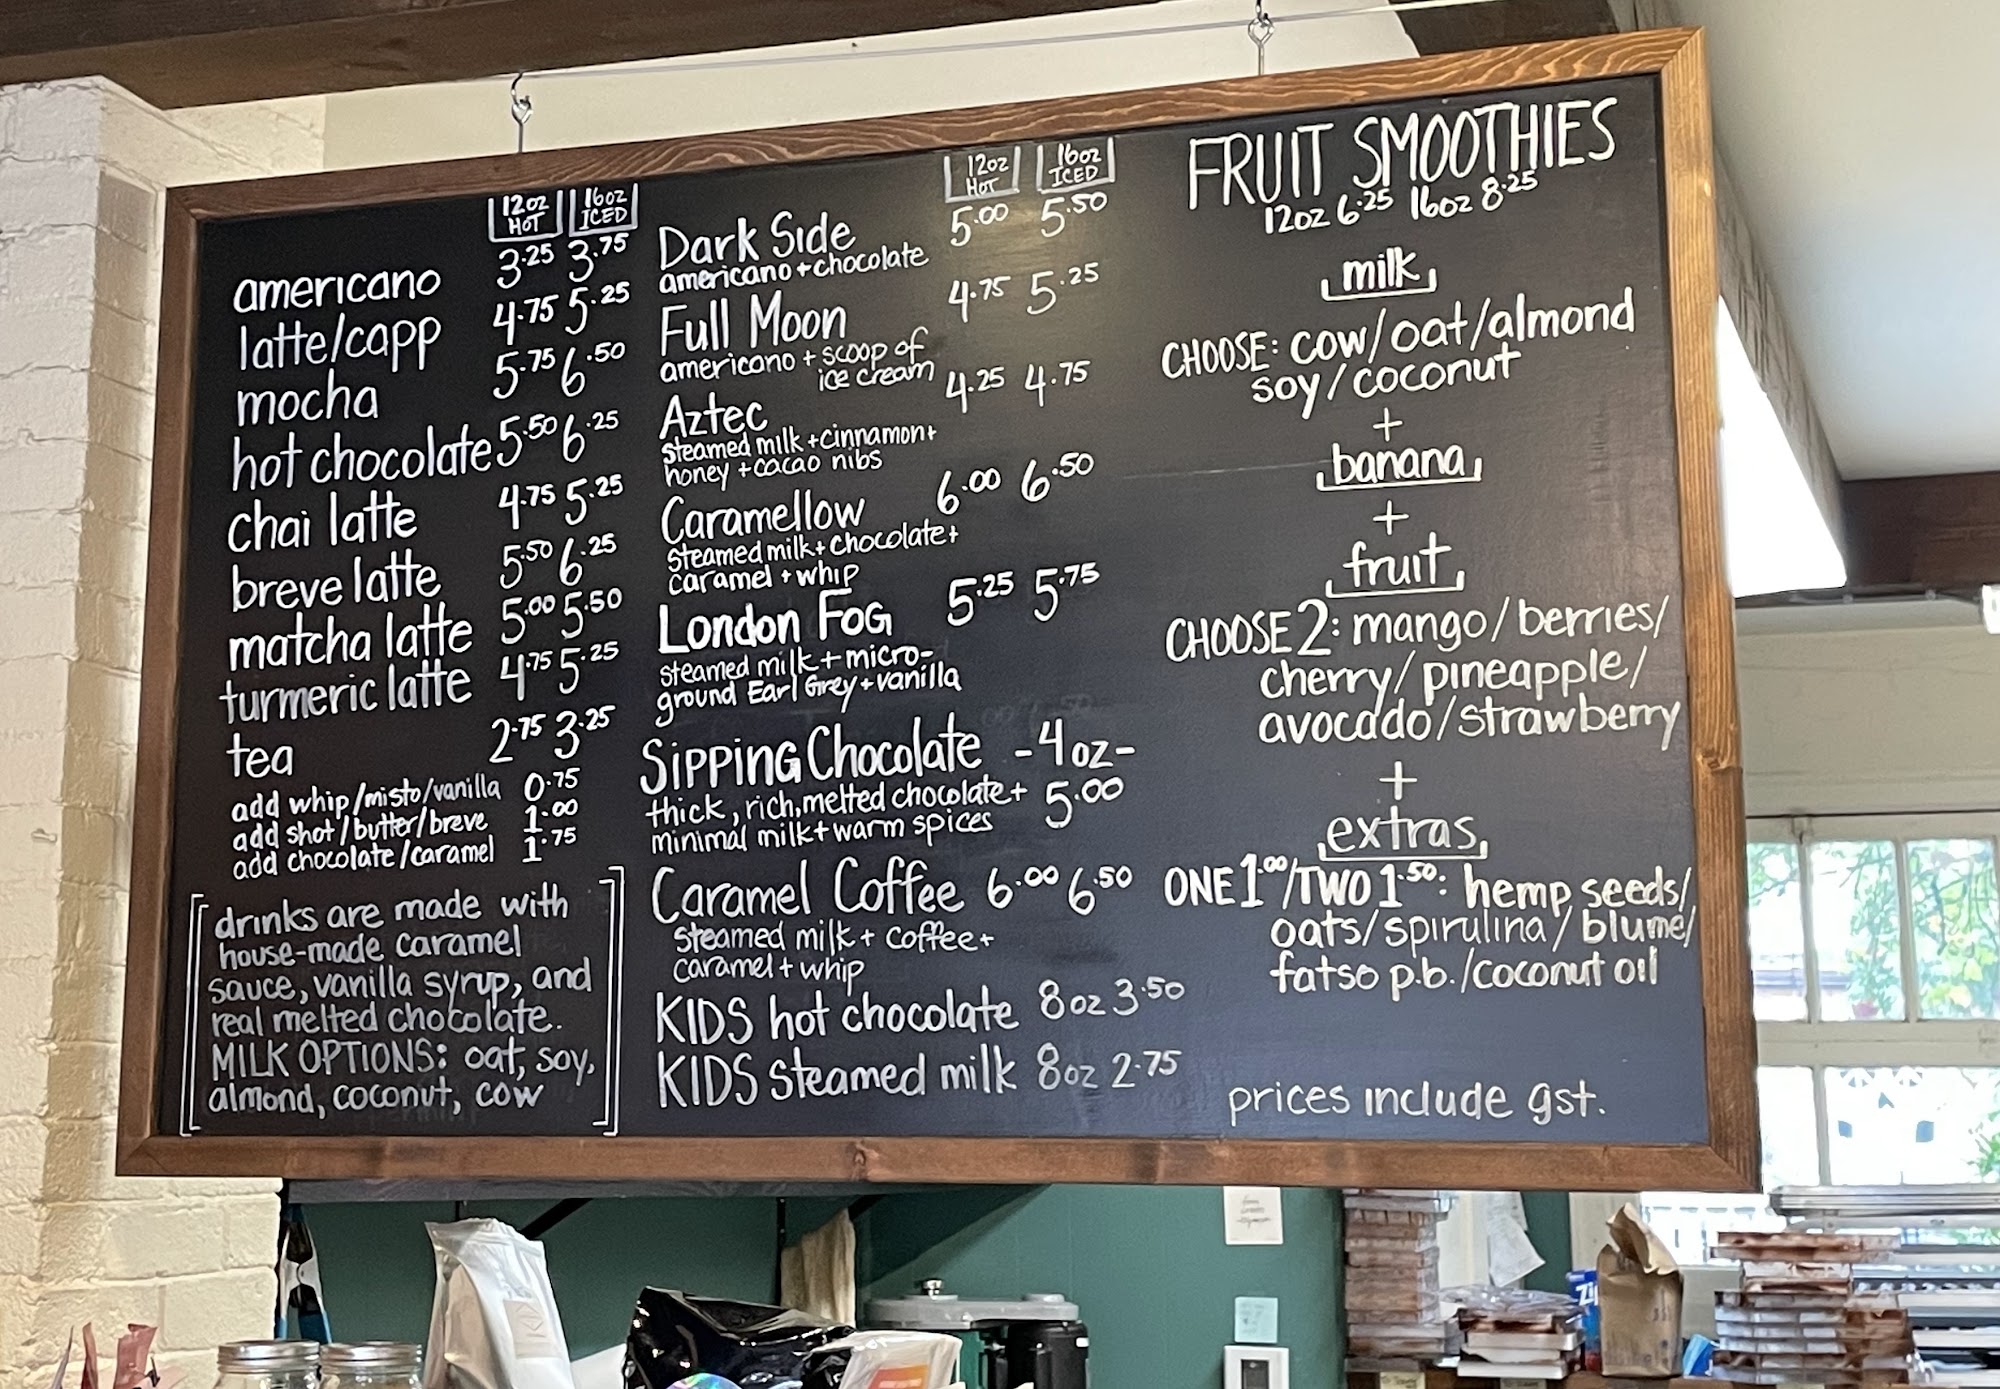 12oz HOT 16oz ICED
americano 3.25 3.75
latte/capp 4.75 5.25
mocha 5.75 6.50
hot chocolate 5.50 6.25
chai latte 4.75 5.25
breve latte 5.50 6.25
matcha latte 5.00 5.50
turmeric latte 4.75 5.25
tea 2.75 3.25
add whip/misto/vanilla 0.75
add shot/butter/breve 1.00
add chocolate/caramel 1.75
drinks are made with
house-made caramel
sauce, vanilla syrup, and
real melted chocolate.
MILK OPTIONS: oat, soy,
almond, coconut, cow
12oz HOT 16oz ICED
Dark Side 5.00 5.50
americano + chocolate
Full Moon 4.75 5.25
americano + scoop of
ice cream
Aztec 4.25 4.75
steamed milk + cinnamon +
honey + cacao nibs
Caramellow 6.00 6.50
steamed milk + chocolate +
caramel + whip
London FOG 5.25 5.75
steamed milk + micro-
ground Earl Grey + vanilla
SIPPING Chocolate -4oz-
thick, rich, melted chocolate + 5.00
minimal milk + warm spices
Caramel Coffee 6.00 6.50
steamed milk + coffee +
caramel + whip
KIDS hot chocolate 8oz 3.50
KIDS steamed milk 8oz 2.75
FRUIT SMOOTHIES
12oz 6.25 16oz 8.25
milk
CHOOSE: cow/oat/almond
soy/coconut
+
banana
+
fruit
CHOOSE 2: mango/berries/
cherry/pineapple/
avocado/strawberry
+
extras
ONE 1.00/TWO 1.50: hemp seeds/
oats/spirulina/blume/
fatso p.b./coconut oil
prices include gst.